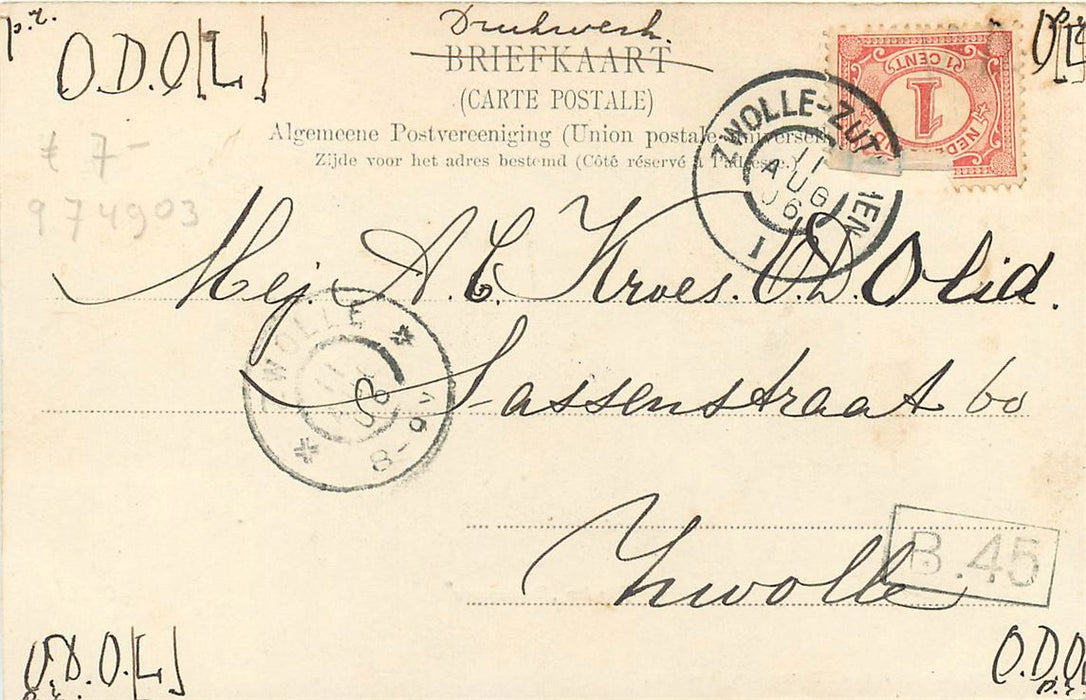 p.r.
O.D.O[L]
Drukwerk.
BRIEFKAART
(CARTE POSTALE)
Algemeene Postvereeniging (Union postale universelle)
Zijde voor het adres bestemd (Côté réservé à l'adresse)
p.r.
O[L]
1 CENT
1
NEDE
ZWOLLE-ZUTPHEN
11
AUG
06
I
7-
974903
Mej. A. C. Kroes. O.D. Olid.
Sassenstraat 60
Zwolle
ZWOLLE
11
8-
B.45
O.D.O.[L]
p.r.
O.D.O
p.r.